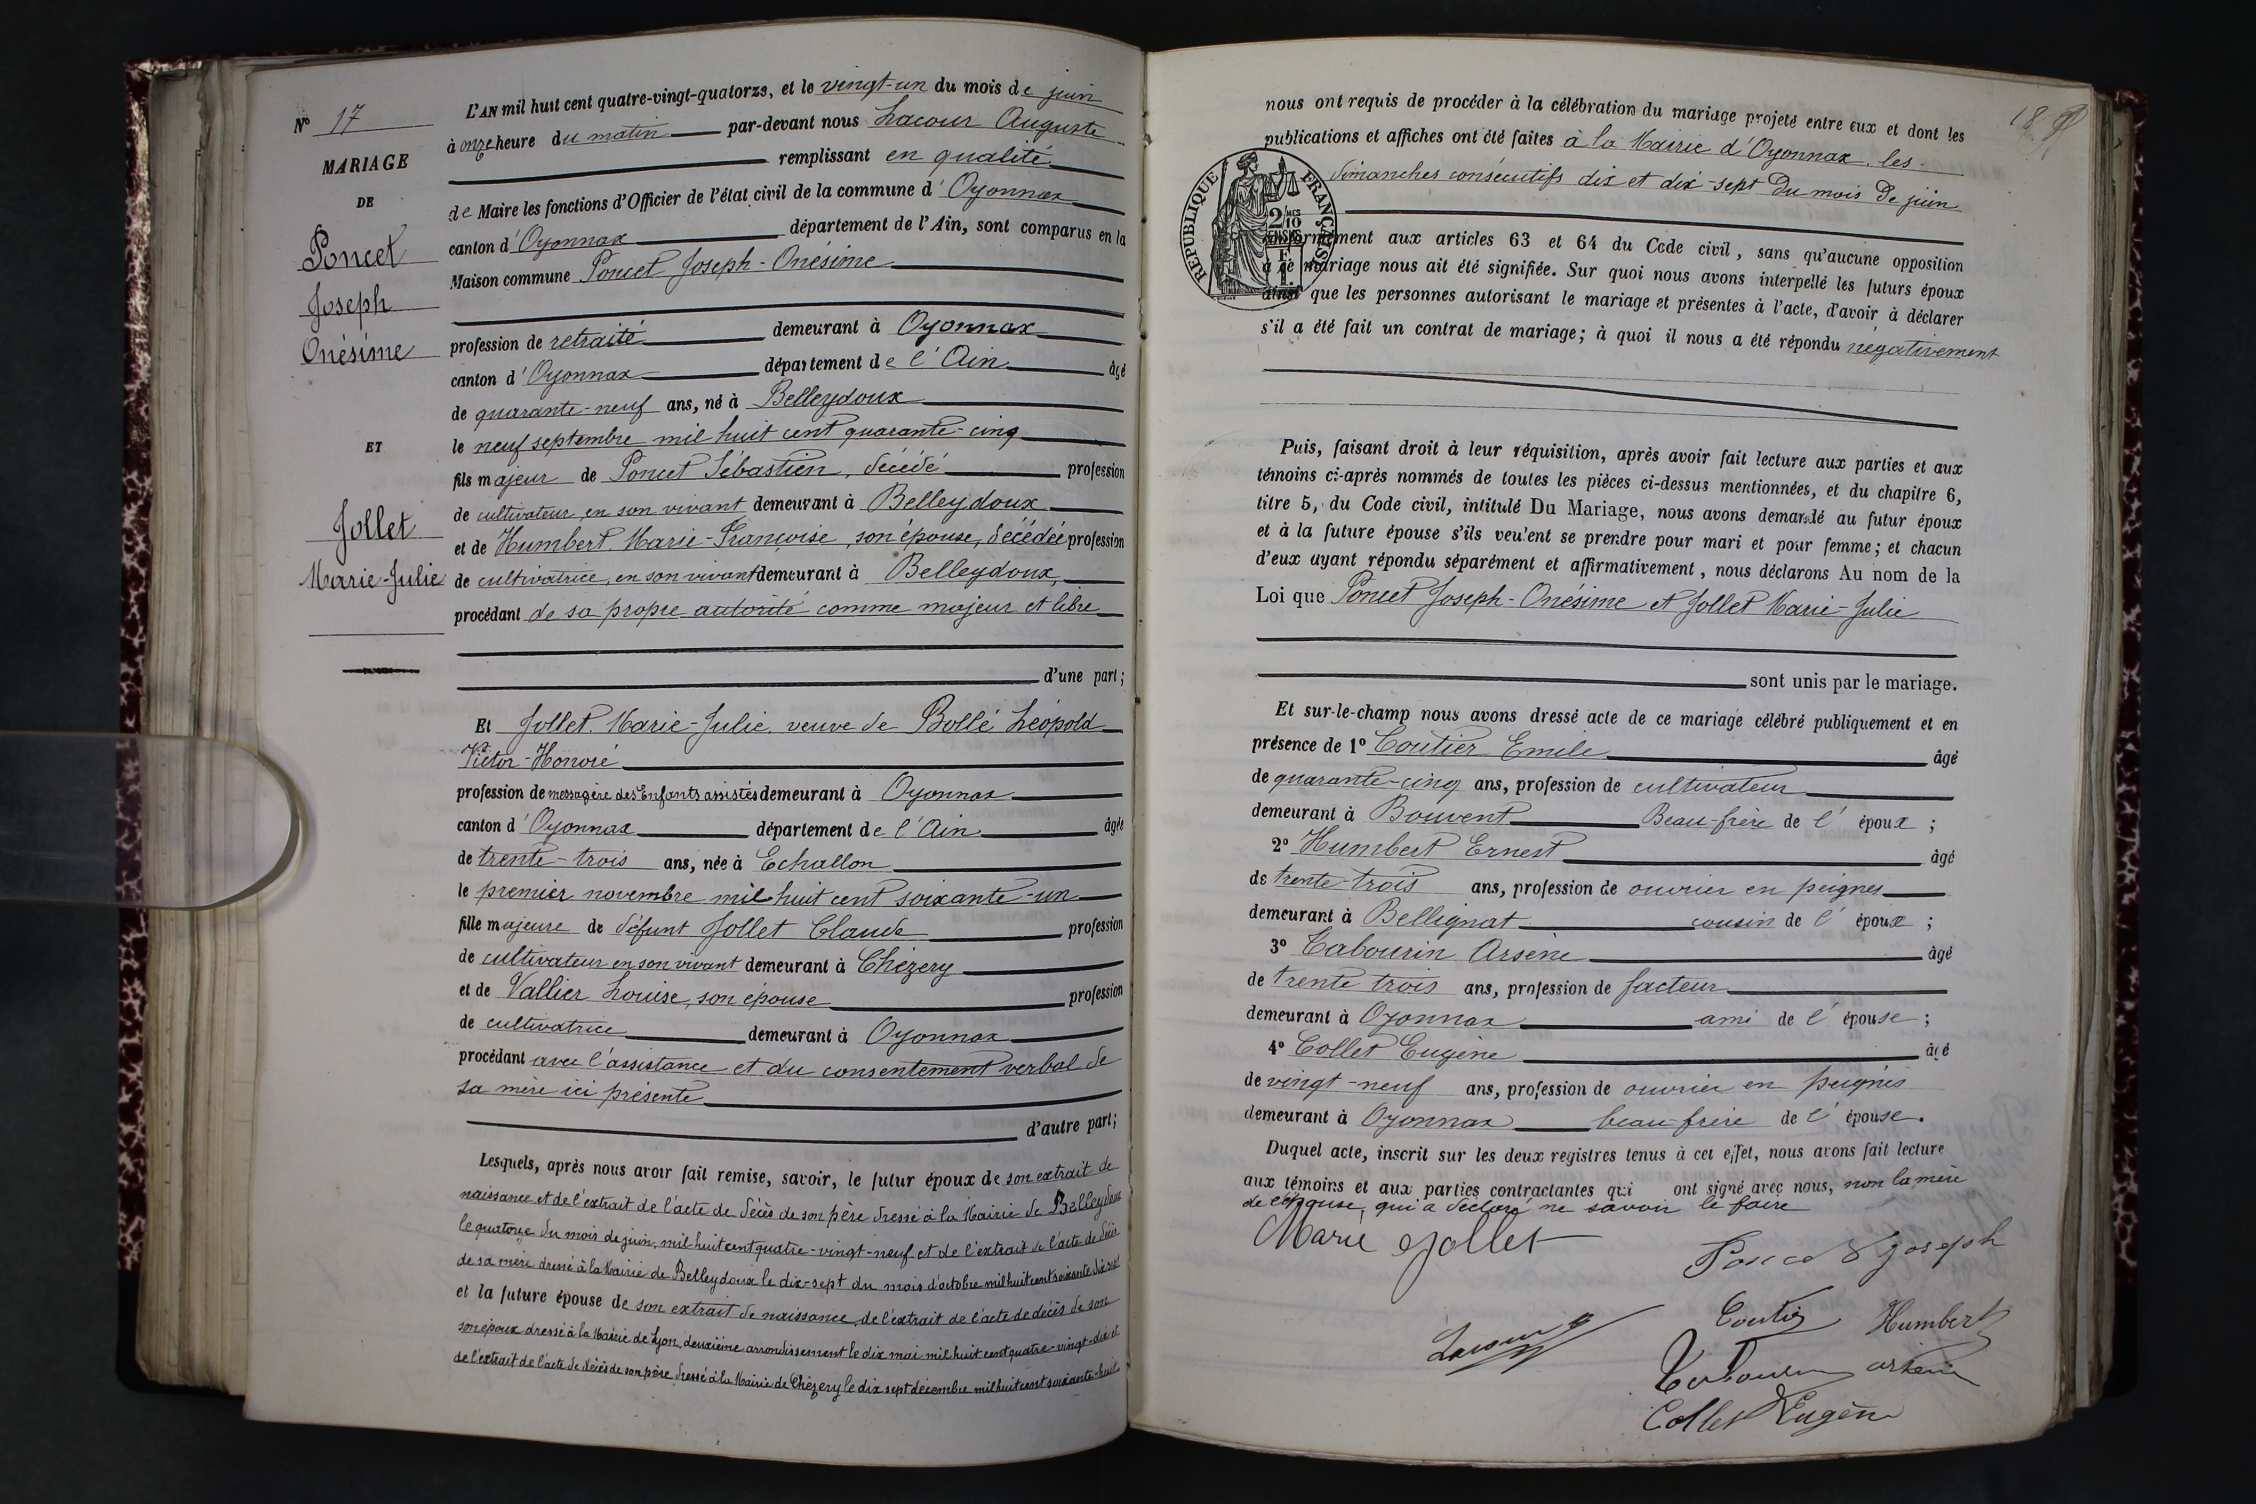 N° 17
MARIAGE
DE
Poncet
Joseph
Onésime
ET
Jollet
Marie-Julie
L'AN mil huit cent quatre-vingt-quatorze, et le vingt-un du mois de juin
à onze heure du matin par-devant nous Lacour Auguste
remplissant en qualité
de Maire les fonctions d'Officier de l'état civil de la commune d'Oyonnax
canton d'Oyonnax département de l'Ain, sont comparus en la
Maison commune Poncet Joseph-Onésime
profession de retraité demeurant à Oyonnax
canton d'Oyonnax département de l'Ain âgé
de quarante-neuf ans, né à Belleydoux
le neuf septembre mil huit cent quarante-cinq
fils majeur de Poncet Sébastien, décédé profession
de cultivateur en son vivant demeurant à Belleydoux
et de Humbert Marie-Françoise, son épouse, décédée profession
de cultivatrice, en son vivant demeurant à Belleydoux,
procédant de sa propre autorité comme majeur et libre
d'une part;
Et Jollet Marie-Julie, veuve de Bollé Léopold
Victor-Honoré
profession de messagère des Enfants assistés demeurant à Oyonnax
canton d'Oyonnax département de l'Ain âgée
de trente-trois ans, née à Echallon
le premier novembre mil huit cent soixante-un
fille majeure de défunt Jollet Claude profession
de cultivateur en son vivant demeurant à Chézery
et de Vallier Louise, son épouse profession
de cultivatrice demeurant à Oyonnax
procédant avec l'assistance et du consentement verbal de
sa mère ici présente
d'autre part;
Lesquels, après nous avoir fait remise, savoir, le futur époux de son extrait de
naissance et de l'extrait de l'acte de décès de son père dressé à la Mairie de Belleydoux
le quatorze du mois de juin, mil huit cent quatre-vingt-neuf et de l'extrait de l'acte de décès
de sa mère dressé à la Mairie de Belleydoux le dix-sept du mois d'octobre mil huit cent soixante dix sept
et la future épouse de son extrait de naissance, de l'extrait de l'acte de décès de son
son époux dressé à la Mairie de Lyon, deuxième arrondissement le dix mai mil huit cent quatre-vingt-dix et
de l'extrait de l'acte de décès de son père dressé à la Mairie de Chézery le dix sept décembre mil huit cent soixante-huit
18
nous ont requis de procéder à la célébration du mariage projeté entre eux et dont les
publications et affiches ont été faites à la Mairie d'Oyonnax, les
dimanches consécutifs dix et dix-sept du mois de juin
RÉPUBLIQUE FRANÇAISE
conformément aux articles 63 et 64 du Code civil, sans qu'aucune opposition
à ce mariage nous ait été signifiée. Sur quoi nous avons interpellé les futurs époux
ainsi que les personnes autorisant le mariage et présentes à l'acte, d'avoir à déclarer
s'il a été fait un contrat de mariage; à quoi il nous a été répondu négativement
Puis, faisant droit à leur réquisition, après avoir fait lecture aux parties et aux
témoins ci-après nommés de toutes les pièces ci-dessus mentionnées, et du chapitre 6,
titre 5, du Code civil, intitulé Du Mariage, nous avons demandé au futur époux
et à la future épouse s'ils veulent se prendre pour mari et pour femme; et chacun
d'eux ayant répondu séparément et affirmativement, nous déclarons Au nom de la
Loi que Poncet Joseph-Onésime et Jollet Marie-Julie
sont unis par le mariage.
Et sur-le-champ nous avons dressé acte de ce mariage célébré publiquement et en
présence de 1° Coutier Emile âgé
de quarante-cinq ans, profession de cultivateur
demeurant à Bouvent Beau-frère de l'époux;
2° Humbert Ernest âgé
de trente-trois ans, profession de ouvrier en peignes
demeurant à Bellignat cousin de l'époux;
3° Tabourin Arsène âgé
de trente trois ans, profession de facteur
demeurant à Oyonnax ami de l'épouse;
4° Collet Eugène âgé
de vingt-neuf ans, profession de ouvrier en peignes
demeurant à Oyonnax beau-frère de l'épouse.
Duquel acte, inscrit sur les deux registres tenus à cet effet, nous avons fait lecture
aux témoins et aux parties contractantes qui ont signé avec nous, non la mère
de l'épouse, qui a déclaré ne savoir le faire
Marie Jollet
Poncet Joseph
Lacour
Coutier Humbert
Tabourin arsène
Collet Eugène